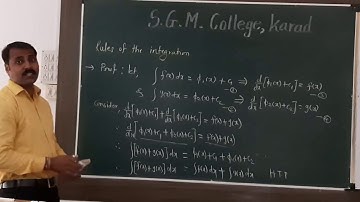 S. G. M. College, Karad
Rules of the integration
→ Proof: let, ∫ f(x) dx = φ₁(x) + c₁ ⇒ d/dx [φ₁(x) + c₁] = f(x) —①
& ∫ g(x) dx = φ₂(x) + c₂ ⇒ d/dx [φ₂(x) + c₂] = g(x) —②
Consider, d/dx [φ₁(x) + c₁] + d/dx [φ₂(x) + c₂] = f(x) + g(x)
∴ d/dx [φ₁(x) + c₁ + φ₂(x) + c₂] = f(x) + g(x)
∴ ∫ [f(x) + g(x)] dx = φ₁(x) + c₁ + φ₂(x) + c₂
∴ ∫ [f(x) + g(x)] dx = ∫ f(x) dx + ∫ g(x) dx